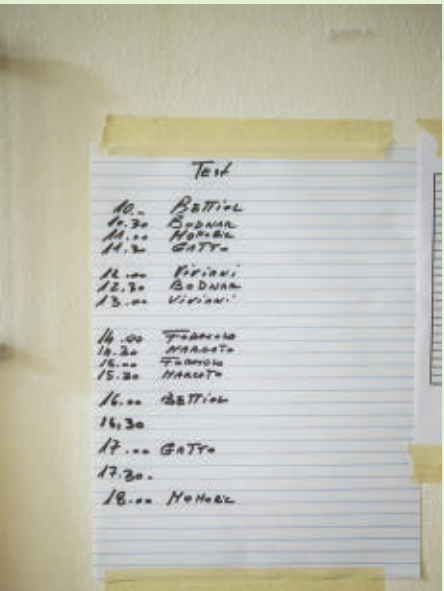 Test
10.- BETTIOL
10.30 BODNAR
11.00 MOHORIC
11.30 GATTO
12.00 Viviani
12.30 BODNAR
13.00 Viviani
14.00 FORMOLO
14.30 MARCATO
15.00 FORMOLO
15.30 MARCATO
16.00 BETTIOL
16,30
17.00 GATTO
17.30.
18.00 MOHORIC